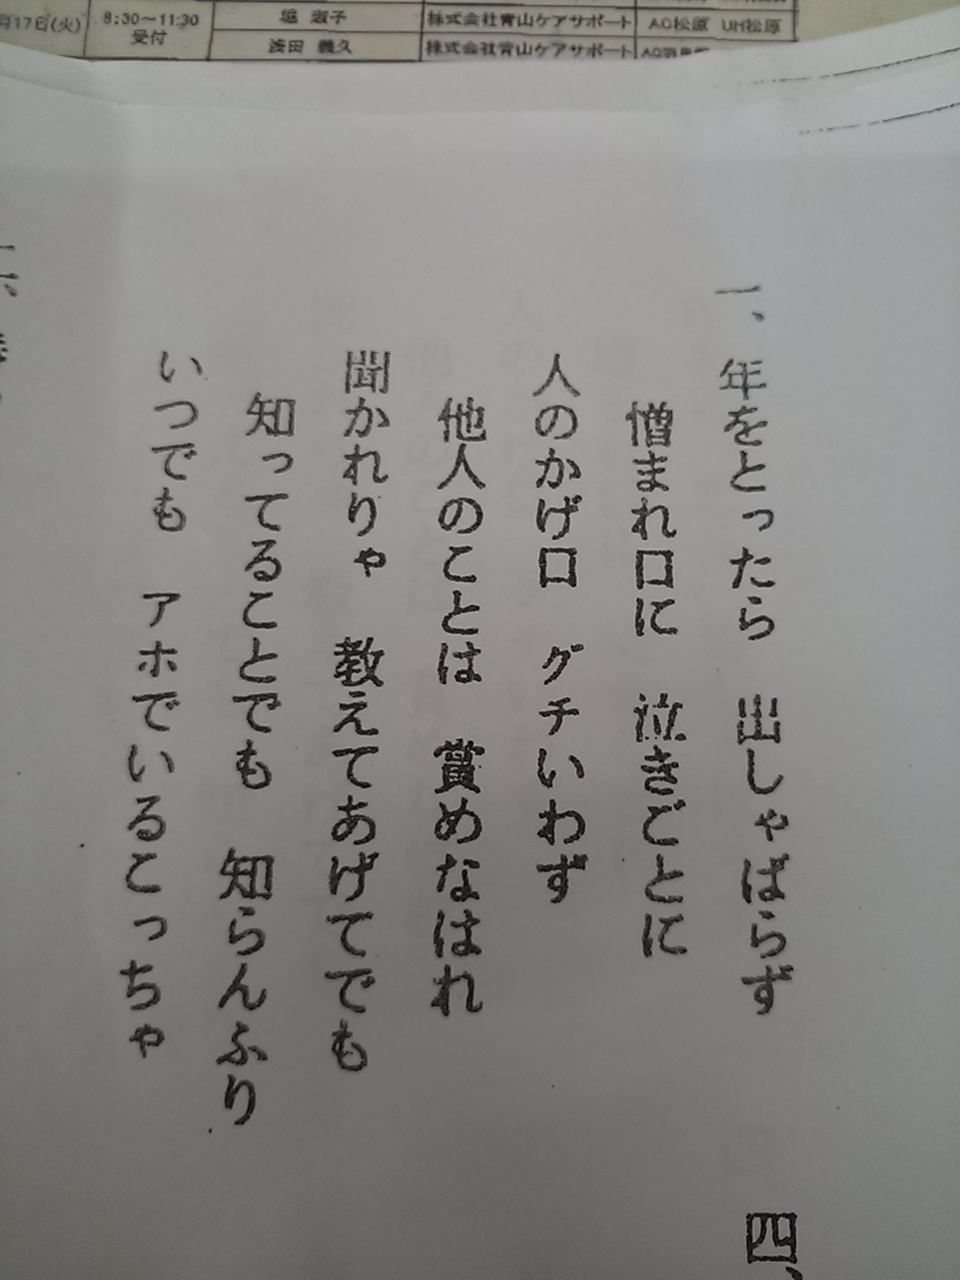 月17日(火)
8:30～11:30
受付
堀 淑子
株式会社青山ケアサポート
AC松原 UH松原
浅田 義久
株式会社青山ケアサポート
一、年をとったら 出しゃばらず
憎まれ口に 泣きごとに
人のかげ口 グチいわず
他人のことは 賞めなはれ
聞かれりゃ 教えてあげてでも
知ってることでも 知らんふり
いつでも アホでいるこっちゃ
四、